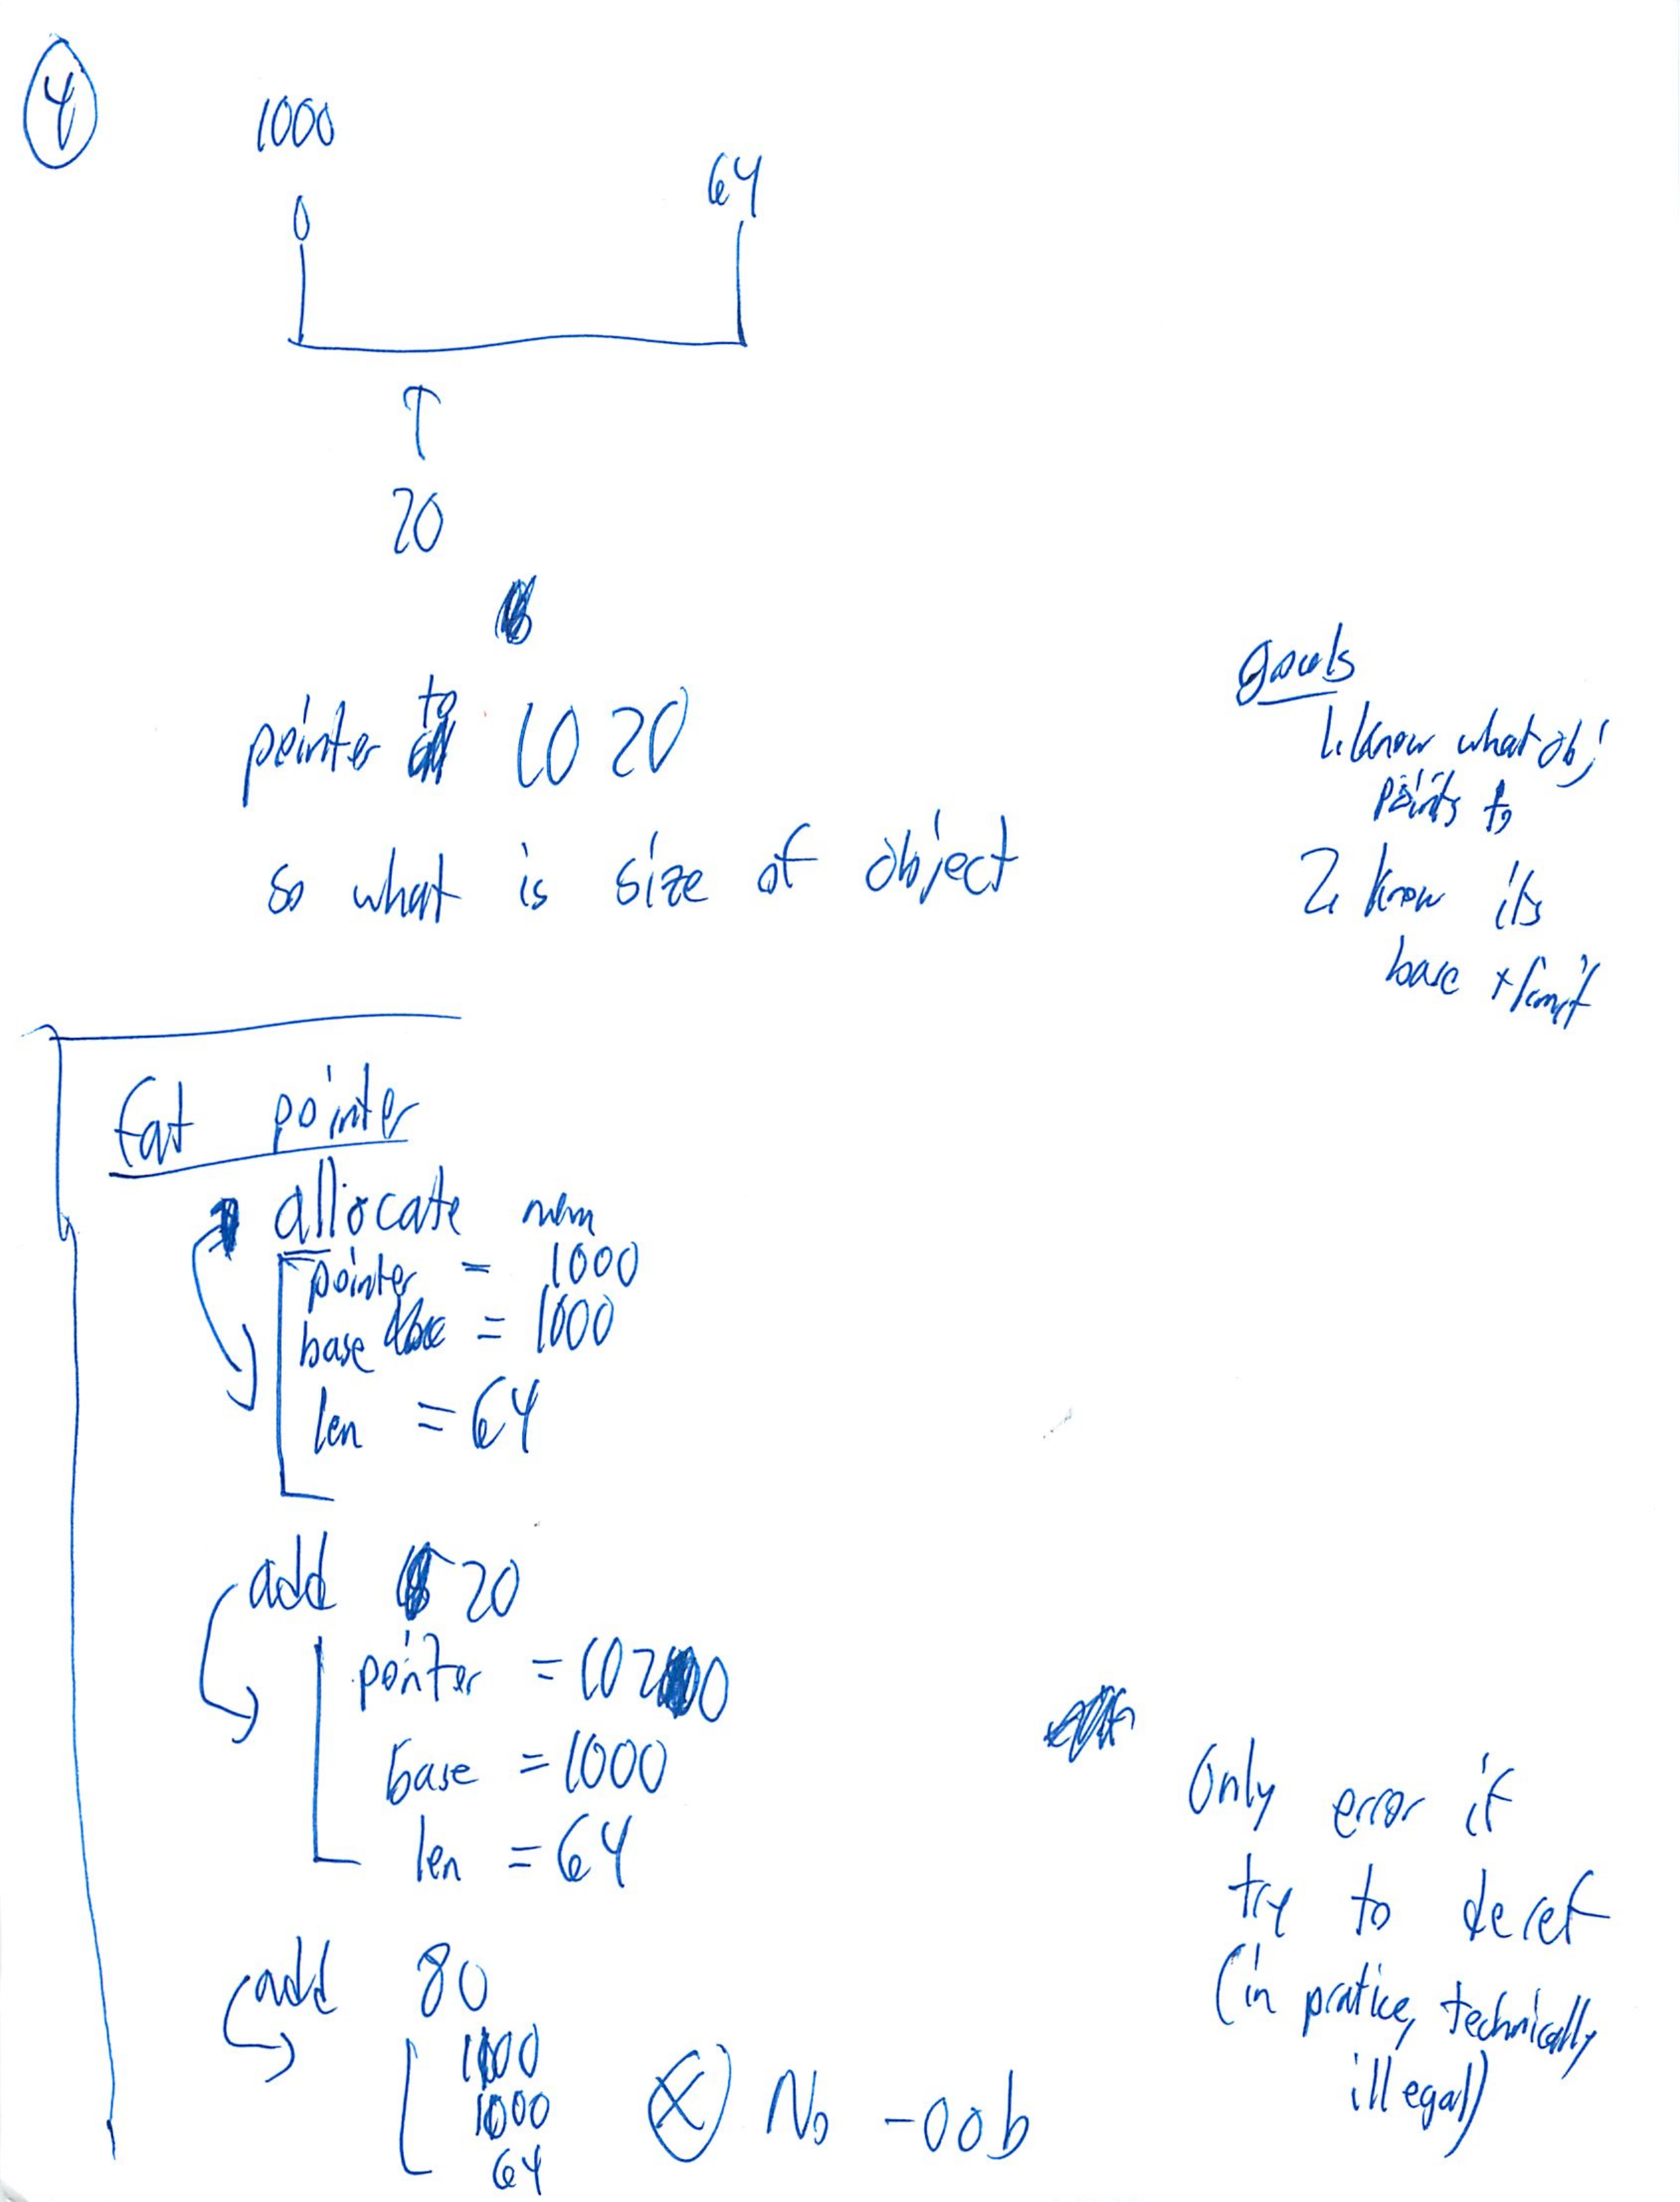 4
1000
64
0
20
pointer to 1020
so what is size of object
goals
1. know what obj
points to
2. know its
base + limit
fat pointer
allocate mem
pointer = 1000
base = 1000
len = 64
add 20
pointer = 1020
base = 1000
len = 64
add 80
1100
1000
64
No - oob
Only error if
try to deref
(in pratice, technically
illegal)